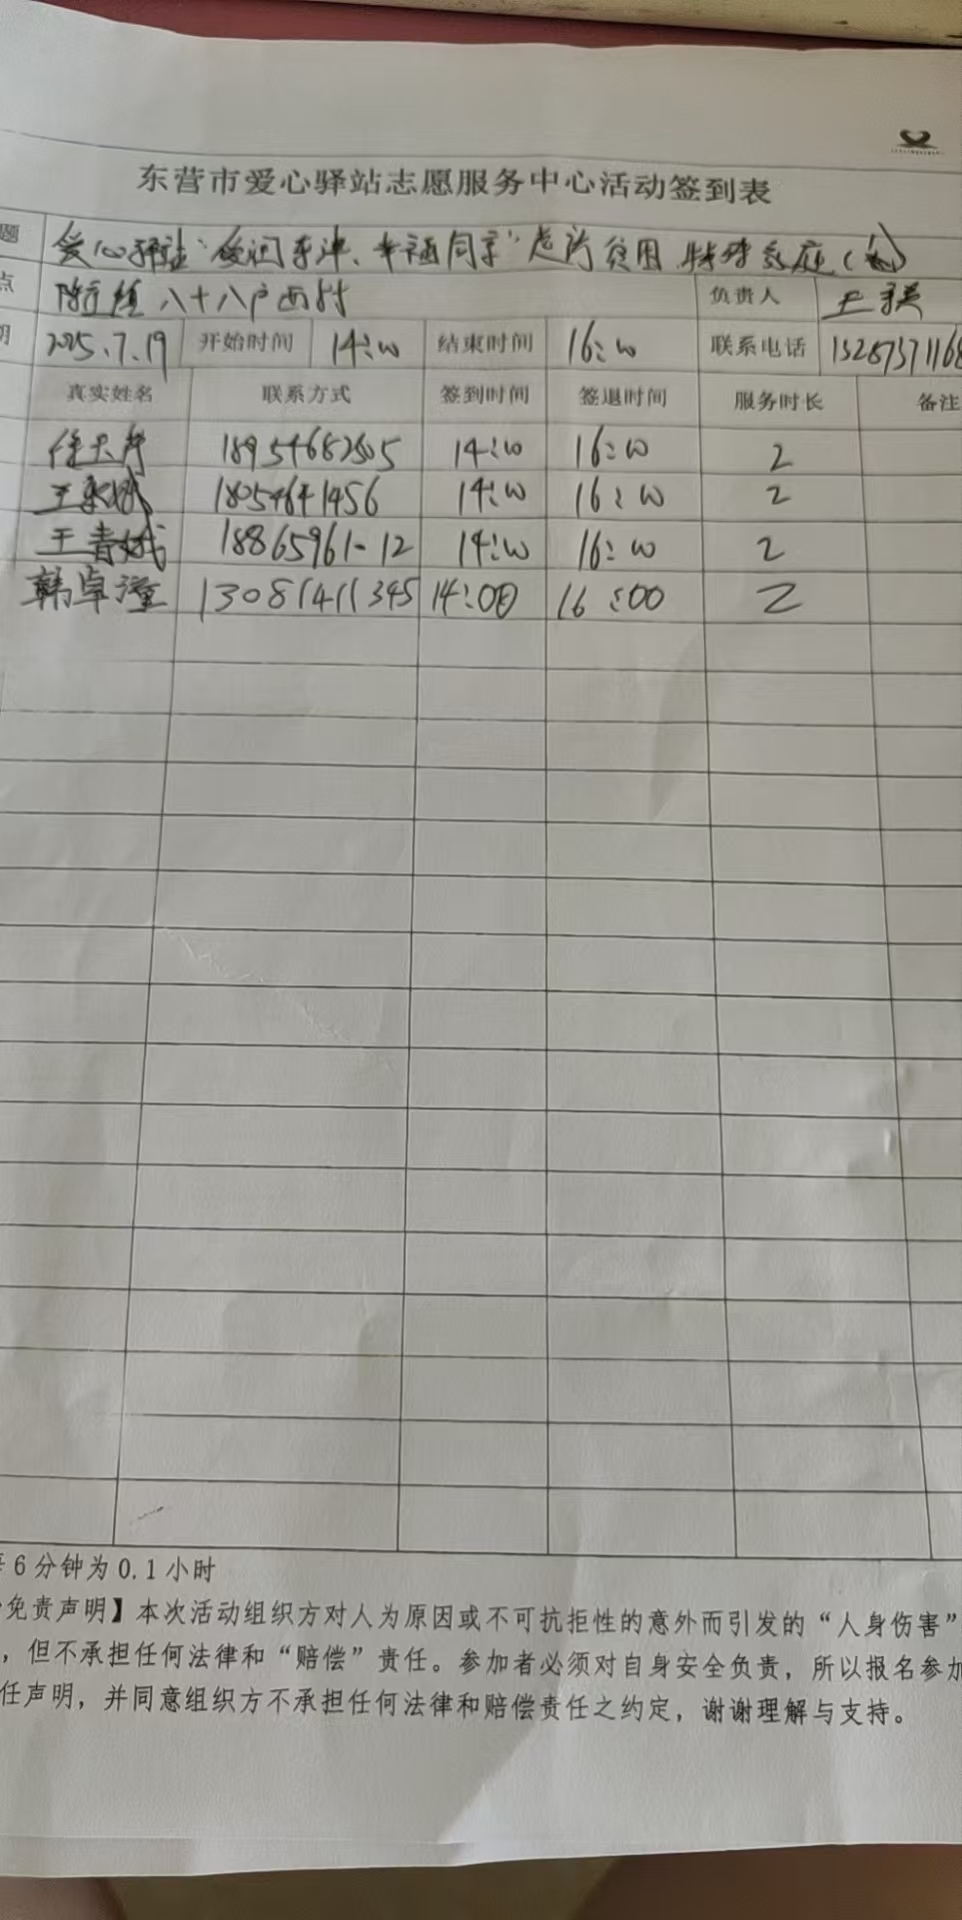 东营市爱心驿站志愿服务中心活动签到表
题 爱心驿站“爱润东津、幸福同享”走访贫困、特殊家庭
点 八十八户西村 负责人 王
期 2025.7.19 开始时间 14:00 结束时间 16:00 联系电话 1328737116
真实姓名 联系方式 签到时间 签退时间 服务时长 备注
18954682605 14:00 16:00 2
王 18054641456 14:00 16:00 2
王青 18865961-12 14:00 16:00 2
韩卓潼 13081411345 14:00 16:00 2
6分钟为0.1小时
免责声明】本次活动组织方对人为原因或不可抗拒性的意外而引发的“人身伤害”
，但不承担任何法律和“赔偿”责任。参加者必须对自身安全负责，所以报名参加
任声明，并同意组织方不承担任何法律和赔偿责任之约定，谢谢理解与支持。